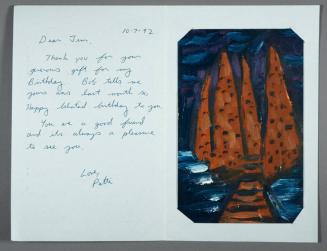 10-7-92
Dear Jim,
Thank you for your
generous gift for my
Birthday. Bob tells me
yours was last month so
Happy belated birthday to you.
You are a good friend
and its always a pleasure
to see you.
Love,
Patti